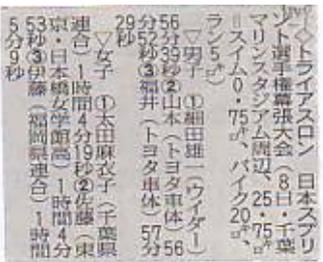 ◇トライアスロン 日本スプリ
ント選手権幕張大会(8日・千葉
マリンスタジアム周辺、25・75㌔
=スイム0・75㌔、バイク20㌔、
ラン5㌔)
▽男子 ①細田雄一(ウイダー)
56分39秒②山本(トヨタ車体)56
分52秒③福井(トヨタ車体)57分
29秒
▽女子 ①太田麻衣子(千葉県
連合)1時間4分19秒②佐藤(東
京・日本橋女学館高)1時間4分
53秒③伊藤(福岡県連合)1時間
5分9秒